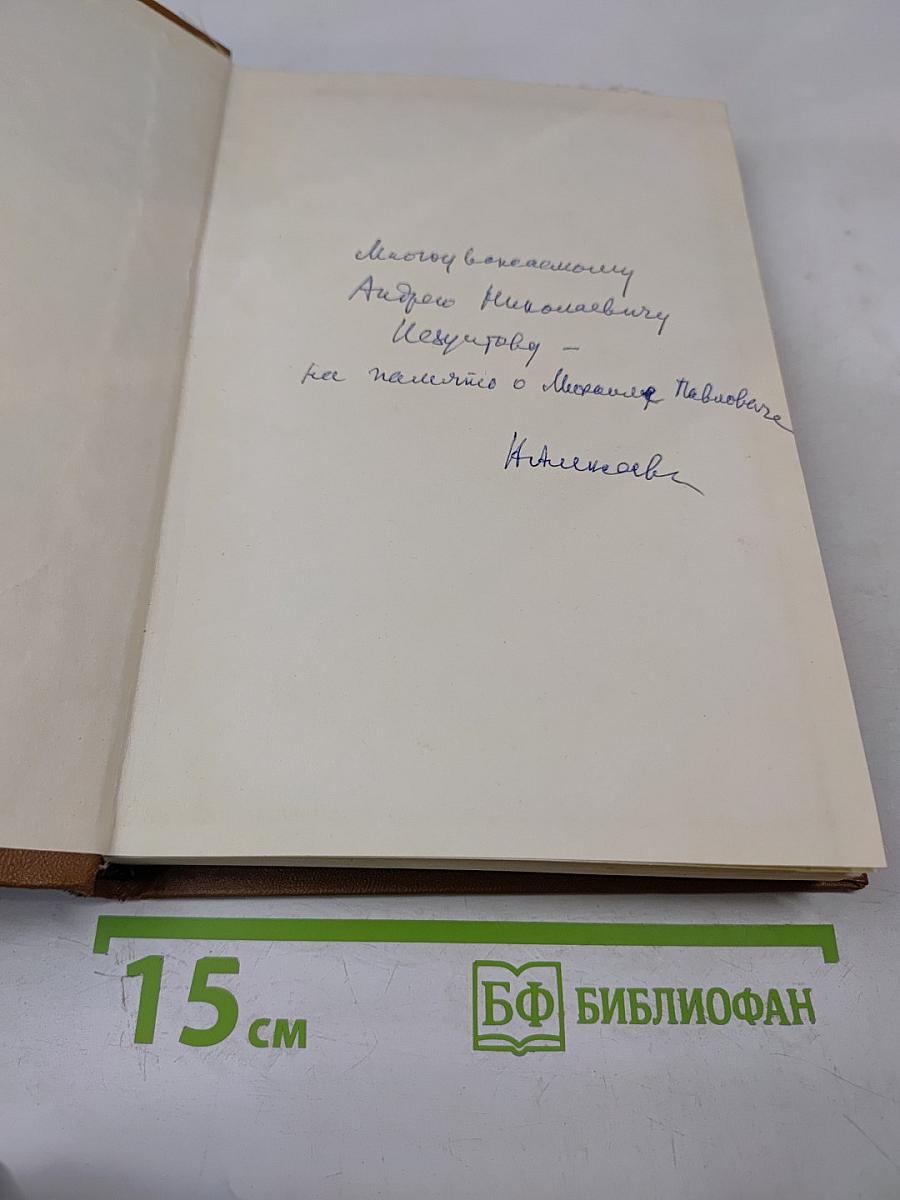 Многоуважаемому
Андрею Николаевичу
Иезуитову –
на память о Михаиле Павловиче
Н Алексеев
15 см
БФ БИБЛИОФАН